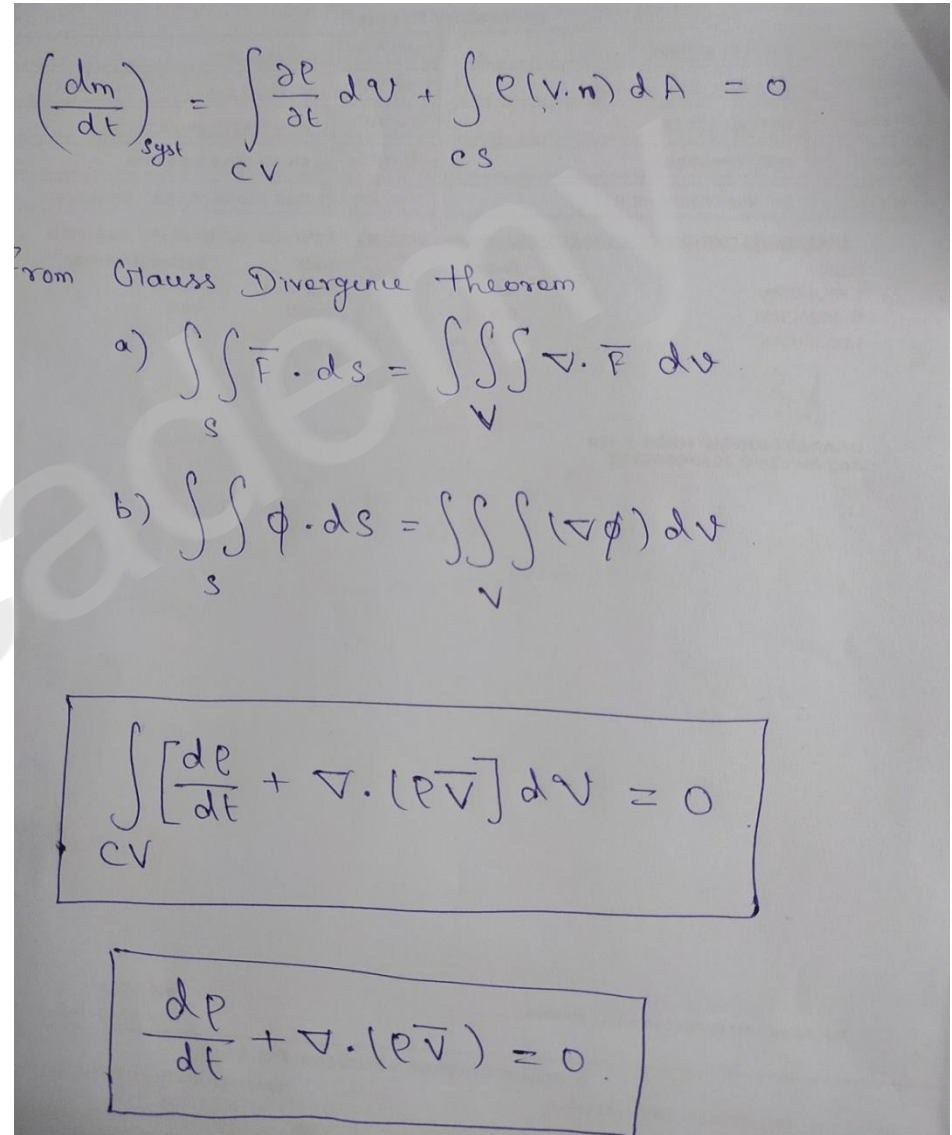 (dm/dt)syst = ∫CV ∂ρ/∂t dV + ∫CS ρ(V.n) dA = 0
From Gauss Divergence theorem
a) ∫∫S F̅ . ds = ∫∫∫V ∇. F̅ dv
b) ∫∫S ϕ .ds = ∫∫∫V (∇ϕ) dv
∫CV [dρ/dt + ∇. (ρV̅] dV = 0
dρ/dt + ∇. (ρV̅) = 0.
ademy